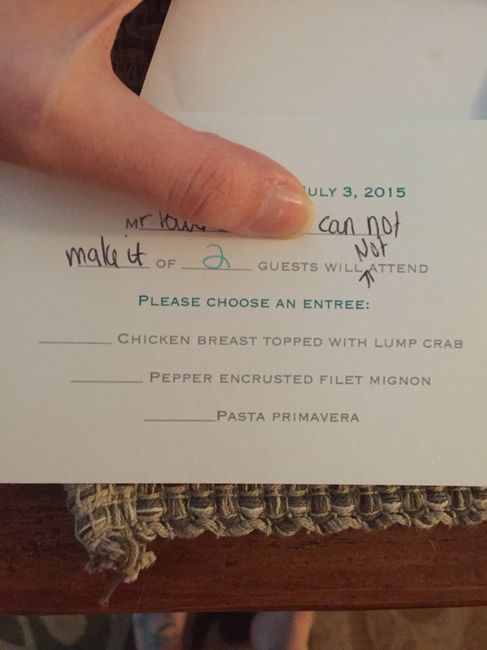 ULY 3, 2015
Mr. can not
make it OF 2 GUESTS WILL Not ATTEND
PLEASE CHOOSE AN ENTREE:
CHICKEN BREAST TOPPED WITH LUMP CRAB
PEPPER ENCRUSTED FILET MIGNON
PASTA PRIMAVERA